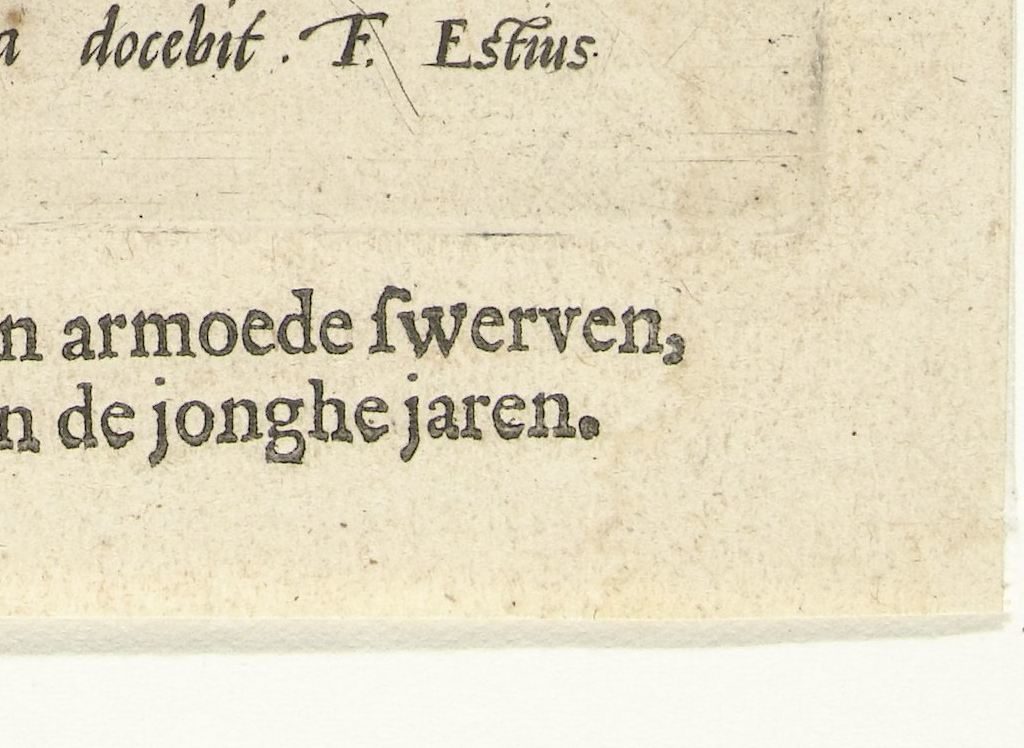 a docebit. F. Estius.
n armoede ſwerven,
n de jonghe jaren.